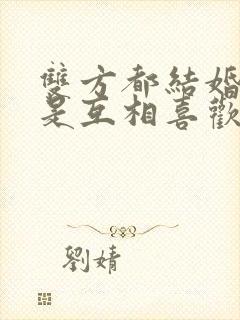 雙方都結婚
是互相喜歡
劉婧